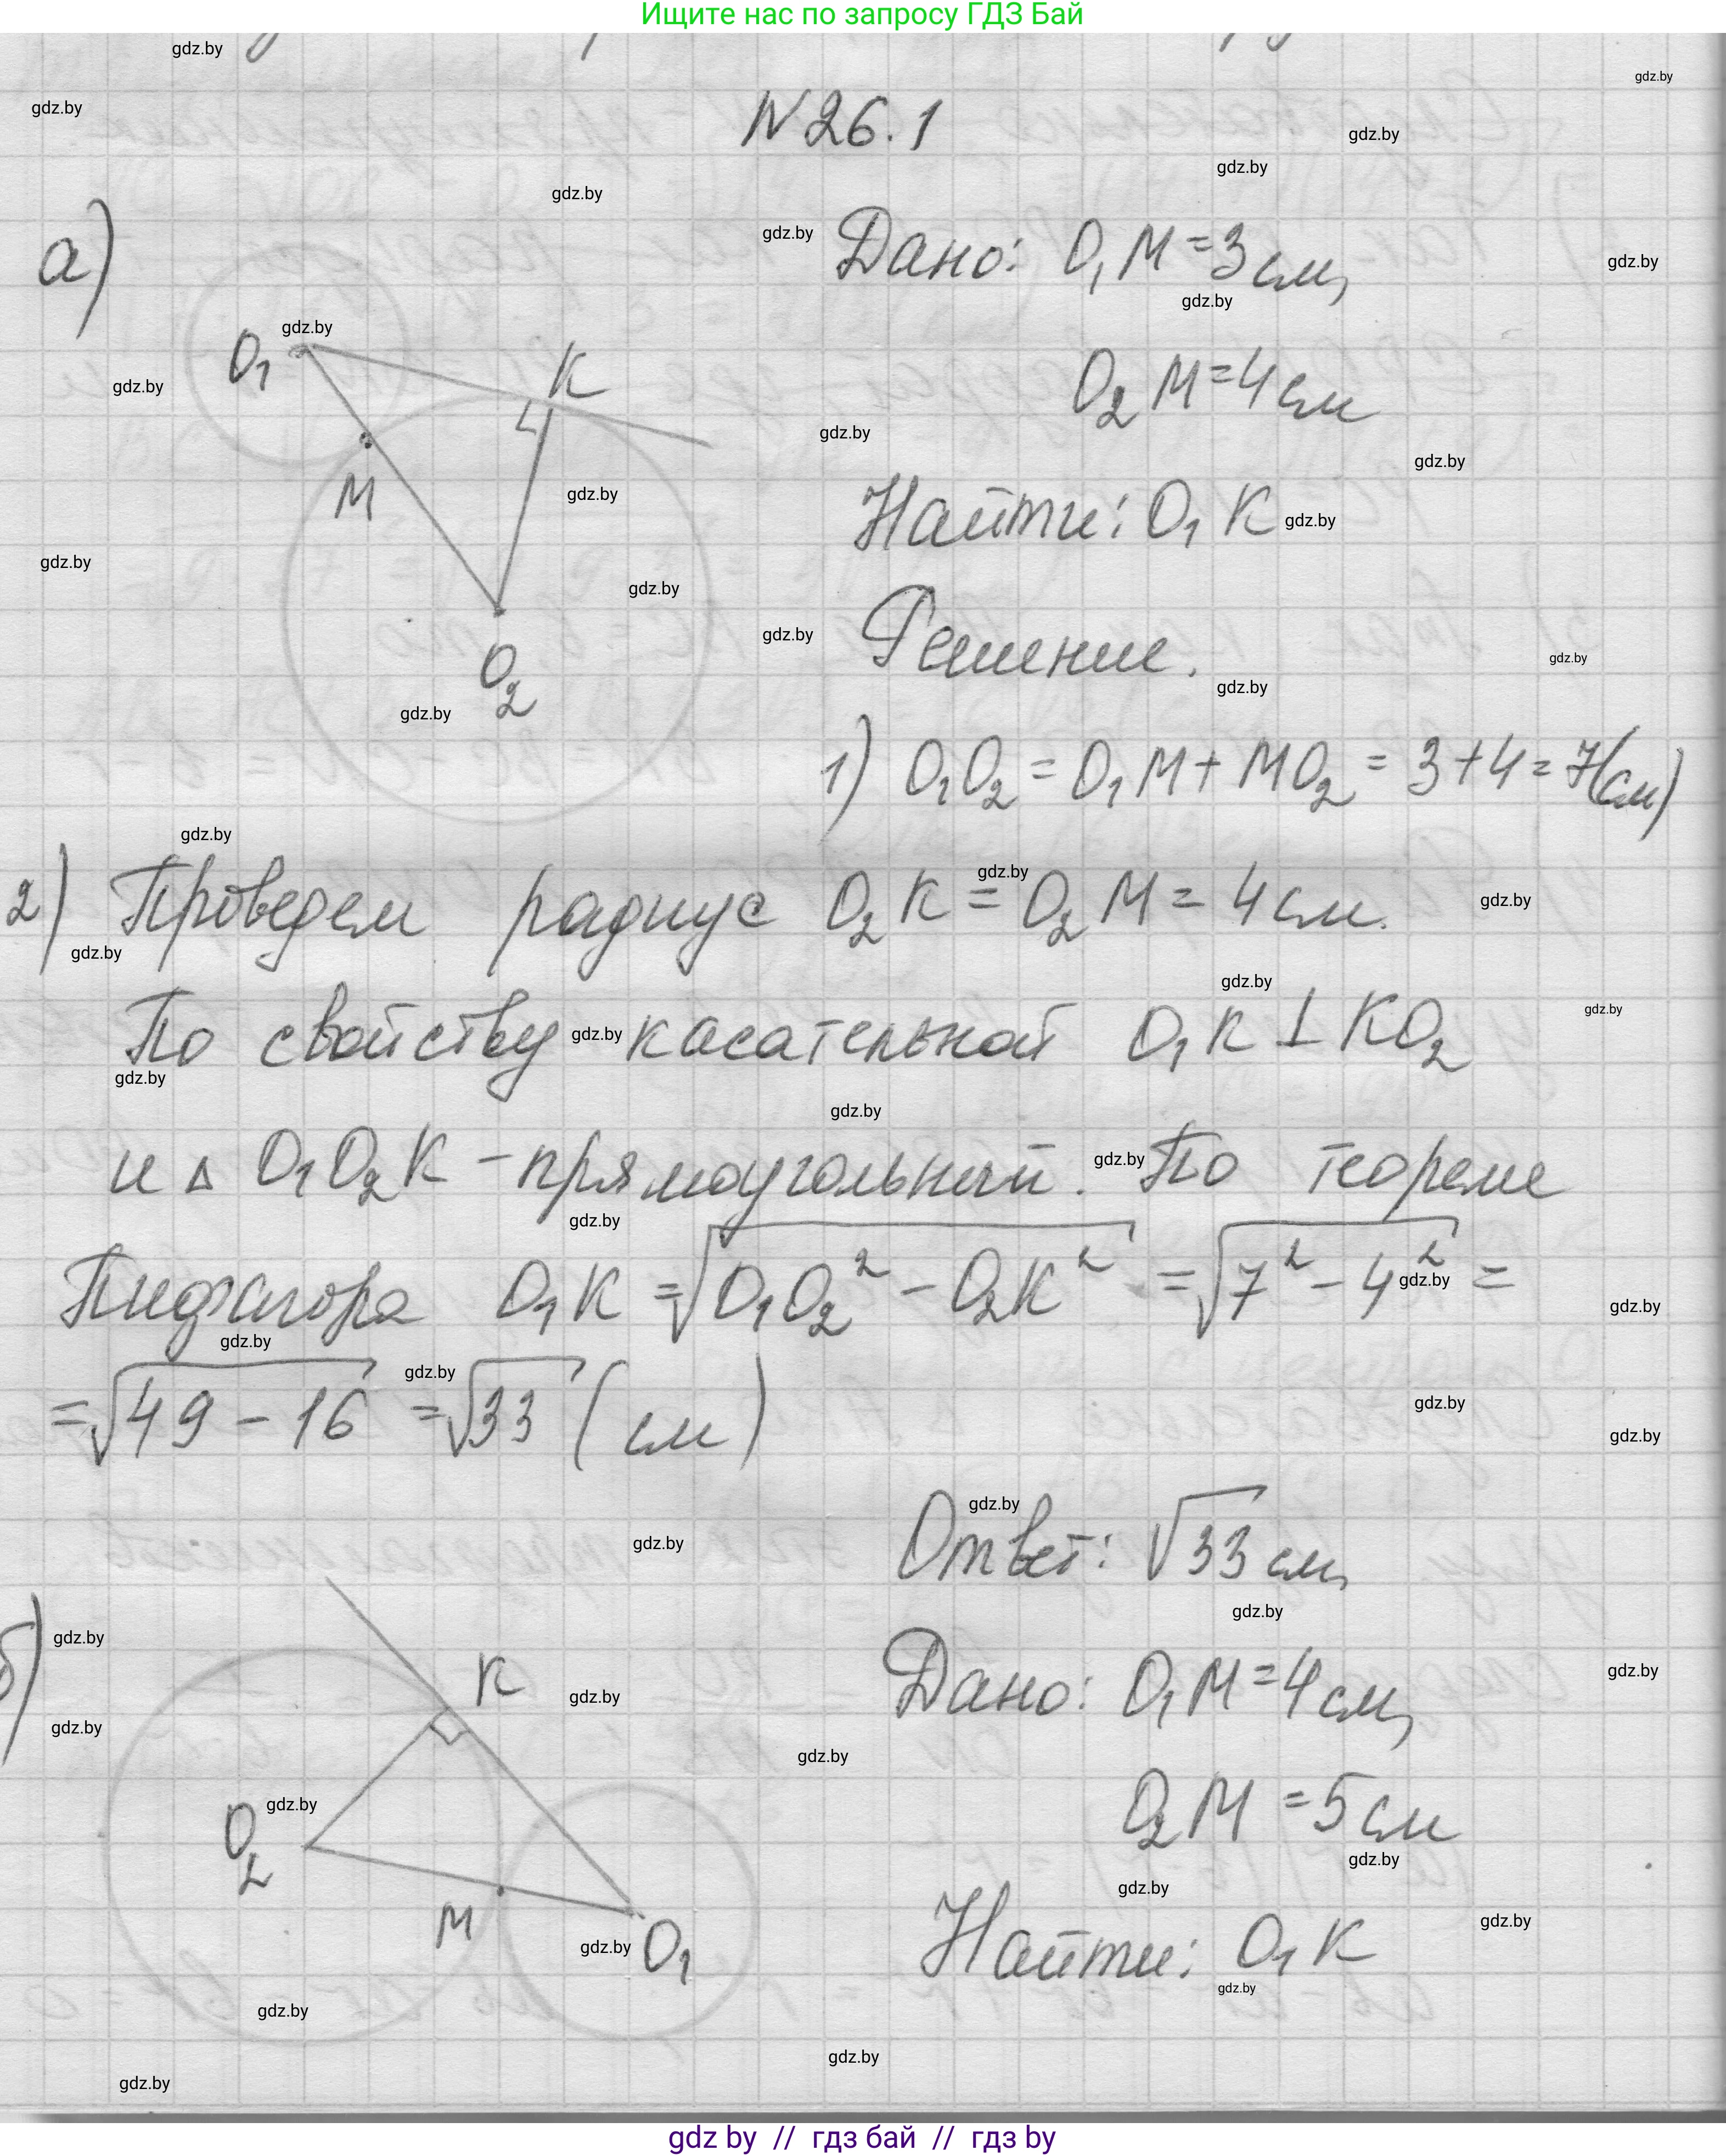 Ищите нас по запросу ГДЗ Бай
N 26.1
а)
Дано: O₁M = 3 см,
O₂M = 4 см
Найти: O₁K
Решение.
O₁
K
M
O₂
1) O₁O₂ = O₁M + MO₂ = 3 + 4 = 7(см)
2) Проведем радиус O₂K = O₂M = 4 см.
По свойству касательной O₁K ⊥ KO₂
и △ O₁O₂K - прямоугольный. По теореме
Пифагора O₁K = √(O₁O₂² - O₂K²) = √(7² - 4²) =
= √(49 - 16) = √33 (см)
Ответ: √33 см,
б)
Дано: O₁M = 4 см,
O₂M = 5 см
Найти: O₁K
K
O₂
M
O₁
gdz.by
gdz by // гдз бай // гдз by